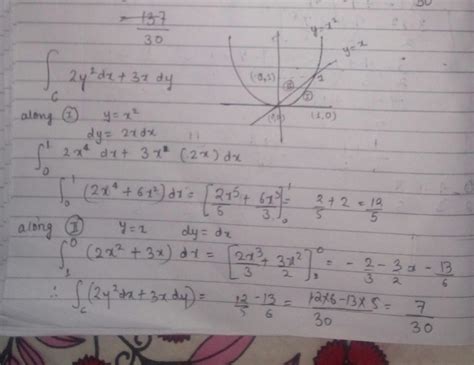 = 137/30
∫_C 2y² dx + 3x dy
y=x²
y=x
(0,0)
(1,0)
along Ⓘ y = x²
dy = 2x dx
∫₀¹ 2x⁴ dx + 3x (2x) dx
∫₀¹ (2x⁴ + 6x²) dx = [2x⁵/5 + 6x³/3]₀¹ = 2/5 + 2 = 12/5
along Ⓘ︎Ⓘ y = x dy = dx
∫₁⁰ (2x² + 3x) dx = [2x³/3 + 3x²/2]₁⁰ = - 2/3 - 3/2 = - 13/6
∴ ∫_C (2y² dx + 3x dy) = 12/5 - 13/6 = 12×6 - 13×5/30 = 7/30